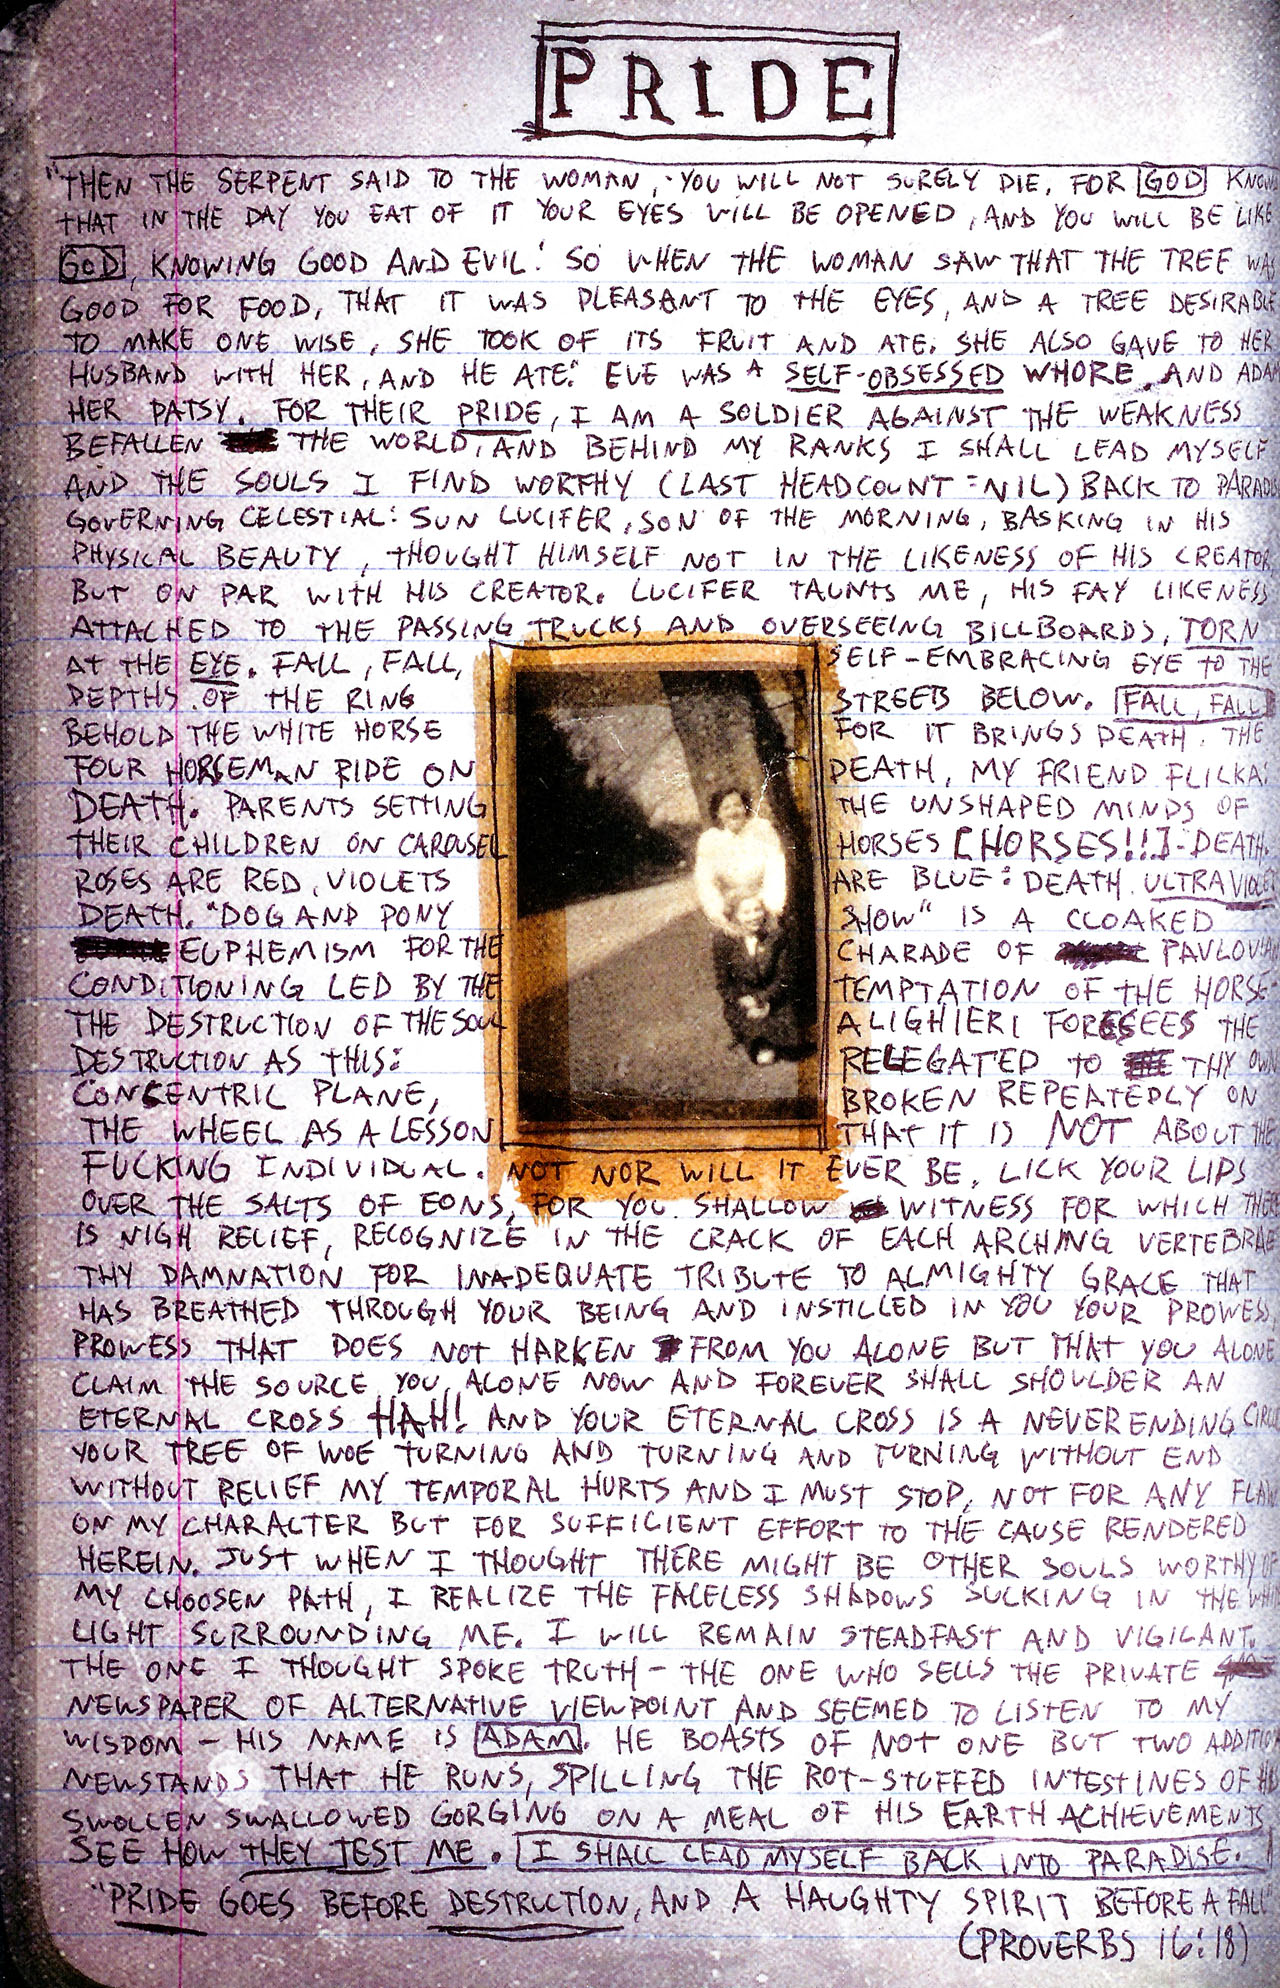 PRIDE
"THEN THE SERPENT SAID TO THE WOMAN, "YOU WILL NOT SURELY DIE. FOR GOD KNOWS
THAT IN THE DAY YOU EAT OF IT YOUR EYES WILL BE OPENED, AND YOU WILL BE LIKE
GOD, KNOWING GOOD AND EVIL.' SO WHEN THE WOMAN SAW THAT THE TREE WAS
GOOD FOR FOOD, THAT IT WAS PLEASANT TO THE EYES, AND A TREE DESIRABLE
TO MAKE ONE WISE, SHE TOOK OF ITS FRUIT AND ATE. SHE ALSO GAVE TO HER
HUSBAND WITH HER, AND HE ATE." EVE WAS A SELF-OBSESSED WHORE. AND ADAM
HER PATSY. FOR THEIR PRIDE, I AM A SOLDIER AGAINST THE WEAKNESS
BEFALLEN THE WORLD, AND BEHIND MY RANKS I SHALL LEAD MYSELF
AND THE SOULS I FIND WORTHY (LAST HEADCOUNT = NIL) BACK TO PARADISE
GOVERNING CELESTIAL: SUN LUCIFER, SON OF THE MORNING, BASKING IN HIS
PHYSICAL BEAUTY, THOUGHT HIMSELF NOT IN THE LIKENESS OF HIS CREATOR,
BUT ON PAR WITH HIS CREATOR. LUCIFER TAUNTS ME, HIS FAY LIKENESS
ATTACHED TO THE PASSING TRUCKS AND OVERSEEING BILLBOARDS, TORN
AT THE EYE. FALL, FALL, SELF-EMBRACING EYE TO THE
DEPTHS OF THE RING STREETS BELOW. FALL, FALL
BEHOLD THE WHITE HORSE FOR IT BRINGS DEATH. THE
FOUR HORSEMAN RIDE ON DEATH, MY FRIEND FLICKA:
DEATH. PARENTS SETTING THE UNSHAPED MINDS OF
THEIR CHILDREN ON CAROUSEL HORSES [HORSES!!]-DEATH.
ROSES ARE RED, VIOLETS ARE BLUE: DEATH. ULTRAVIOLET
DEATH. "DOG AND PONY SHOW" IS A CLOAKED
EUPHEMISM FOR THE CHARADE OF PAVLOVIAN
CONDITIONING LED BY THE TEMPTATION OF THE HORSE-
THE DESTRUCTION OF THE SOUL ALIGHIERI FORESEES THE
DESTRUCTION AS THIS: RELEGATED TO THY OWN
CONCENTRIC PLANE, BROKEN REPEATEDLY ON
THE WHEEL AS A LESSON THAT IT IS NOT ABOUT THE
FUCKING INDIVIDUAL. NOT NOR WILL IT EVER BE. LICK YOUR LIPS
OVER THE SALTS OF EONS, FOR YOU. SHALLOW WITNESS FOR WHICH THERE
IS NIGH RELIEF, RECOGNIZE IN THE CRACK OF EACH ARCHING VERTEBRAE
THY DAMNATION FOR INADEQUATE TRIBUTE TO ALMIGHTY GRACE THAT
HAS BREATHED THROUGH YOUR BEING AND INSTILLED IN YOU YOUR PROWESS,
PROWESS THAT DOES NOT HARKEN FROM YOU ALONE BUT THAT YOU ALONE
CLAIM THE SOURCE YOU ALONE NOW AND FOREVER SHALL SHOULDER AN
ETERNAL CROSS HAH! AND YOUR ETERNAL CROSS IS A NEVERENDING CIRCLE
YOUR TREE OF WOE TURNING AND TURNING AND TURNING WITHOUT END
WITHOUT RELIEF MY TEMPORAL HURTS AND I MUST STOP, NOT FOR ANY FLAW
ON MY CHARACTER BUT FOR SUFFICIENT EFFORT TO THE CAUSE RENDERED
HEREIN. JUST WHEN I THOUGHT THERE MIGHT BE OTHER SOULS WORTHY OF
MY CHOOSEN PATH, I REALIZE THE FACELESS SHADOWS SUCKING IN THE WHITE
LIGHT SURROUNDING ME. I WILL REMAIN STEADFAST AND VIGILANT.
THE ONE I THOUGHT SPOKE TRUTH - THE ONE WHO SELLS THE PRIVATE
NEWSPAPER OF ALTERNATIVE VIEWPOINT AND SEEMED TO LISTEN TO MY
WISDOM - HIS NAME IS ADAM. HE BOASTS OF NOT ONE BUT TWO ADDITION
NEWSTANDS THAT HE RUNS, SPILLING THE ROT-STUFFED INTESTINES OF HIS
SWOLLEN SWALLOWED GORGING ON A MEAL OF HIS EARTH ACHIEVEMENTS
SEE HOW THEY TEST ME. I SHALL LEAD MYSELF BACK INTO PARADISE.
"PRIDE GOES BEFORE DESTRUCTION, AND A HAUGHTY SPIRIT BEFORE A FALL"
(PROVERBS 16:18)